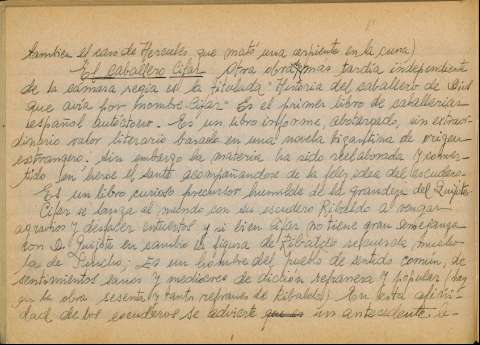 tambien el caso de Hercules que mató una serpiente en la cuna)
El caballero Cifar Otra obra mas tardia independiente
de la cámara regia es la titulada "Historia del caballero de Dios
que avia por nombre Cifar" Es el primer libro de caballerias
español autóctono. Es un libro informe, abotargado, sin extraor
dinario valor literario basado en una novela bizantina de origen
extrangero. Sin embargo la materia ha sido reelaborada y conver-
tido en heroe el santo acompañandose de la feliz idea del escudero.
Es un libro curioso precursor humilde de la grandeza del Quijote
Cifar se lanza al mundo con su escudero Ribaldo a vengar
agravios y desfacer entuertos y si bien Cifar no tiene gran semejanza
con D. Quijote en cambio la figura de Ribaldo recuerda mucho
la de Sancho; Es un hombre del pueblo de sentido comun, de
sentimientos sanos y mediocres de dicción refranera y popular (hay
en la obra sesenta y tantos refranes de Ribaldo). En esta
dad de los escuderos se advierte que es un antecedente